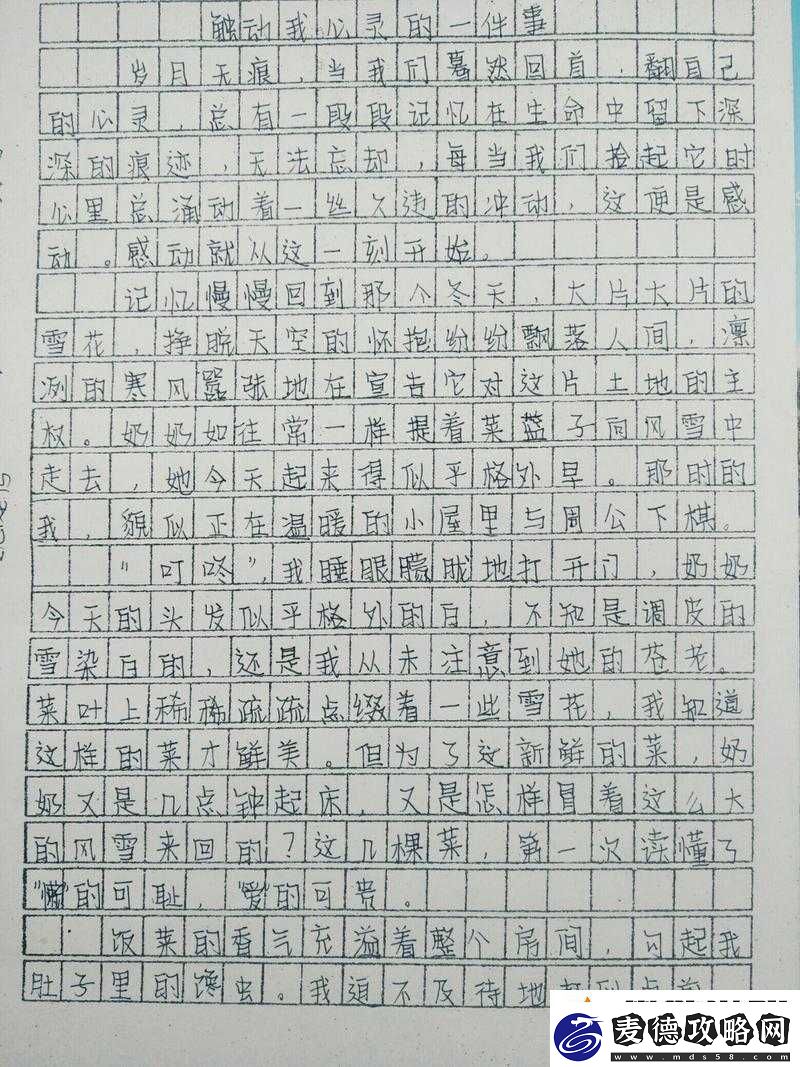 触动我心灵的一件事
岁月无痕，当我们蓦然回首，翻自己
的心灵，总有一段段记忆在生命中留下深
深的痕迹，无法忘却，每当我们捡起它时
心里总涌动着一丝久违的冲动，这便是感
动。感动就从这一刻开始。
记忆慢慢回到那个冬天，大片大片的
雪花，挣脱天空的怀抱纷纷飘落人间，凛
冽的寒风嚣张地在宣告它对这片土地的主
权。奶奶如往常一样提着菜蓝子向风雪中
走去，她今天起来得似乎格外早。那时的
我，貌似正在温暖的小屋里与周公下棋。
“叮咚”，我睡眼朦胧地打开门，奶奶
今天的头发似乎格外的白，不知是调皮的
雪染白的，还是我从未注意到她的苍老。
菜叶上稀稀疏疏点缀着一些雪花，我知道
这样的菜才鲜美。但为了这新鲜的菜，奶
奶又是几点钟起床，又是怎样冒着这么大
的风雪来回的？这几棵菜，第一次读懂了
“懒”的可耻，“爱”的可贵。
饭菜的香气充溢着整个房间，勾起我
肚子里的馋虫。我迫不及待地
麦德攻略网
www.mds58.com